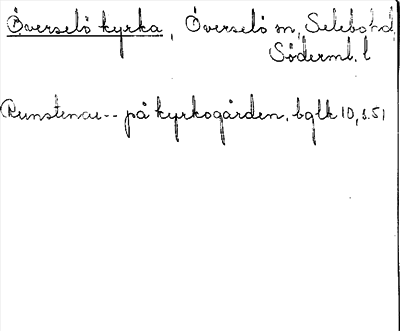 Överselö kyrka, Överselö sn, Selebo hd,
Söderml. l
Runstenar -- på kyrkogården. bglk 10, s. 51